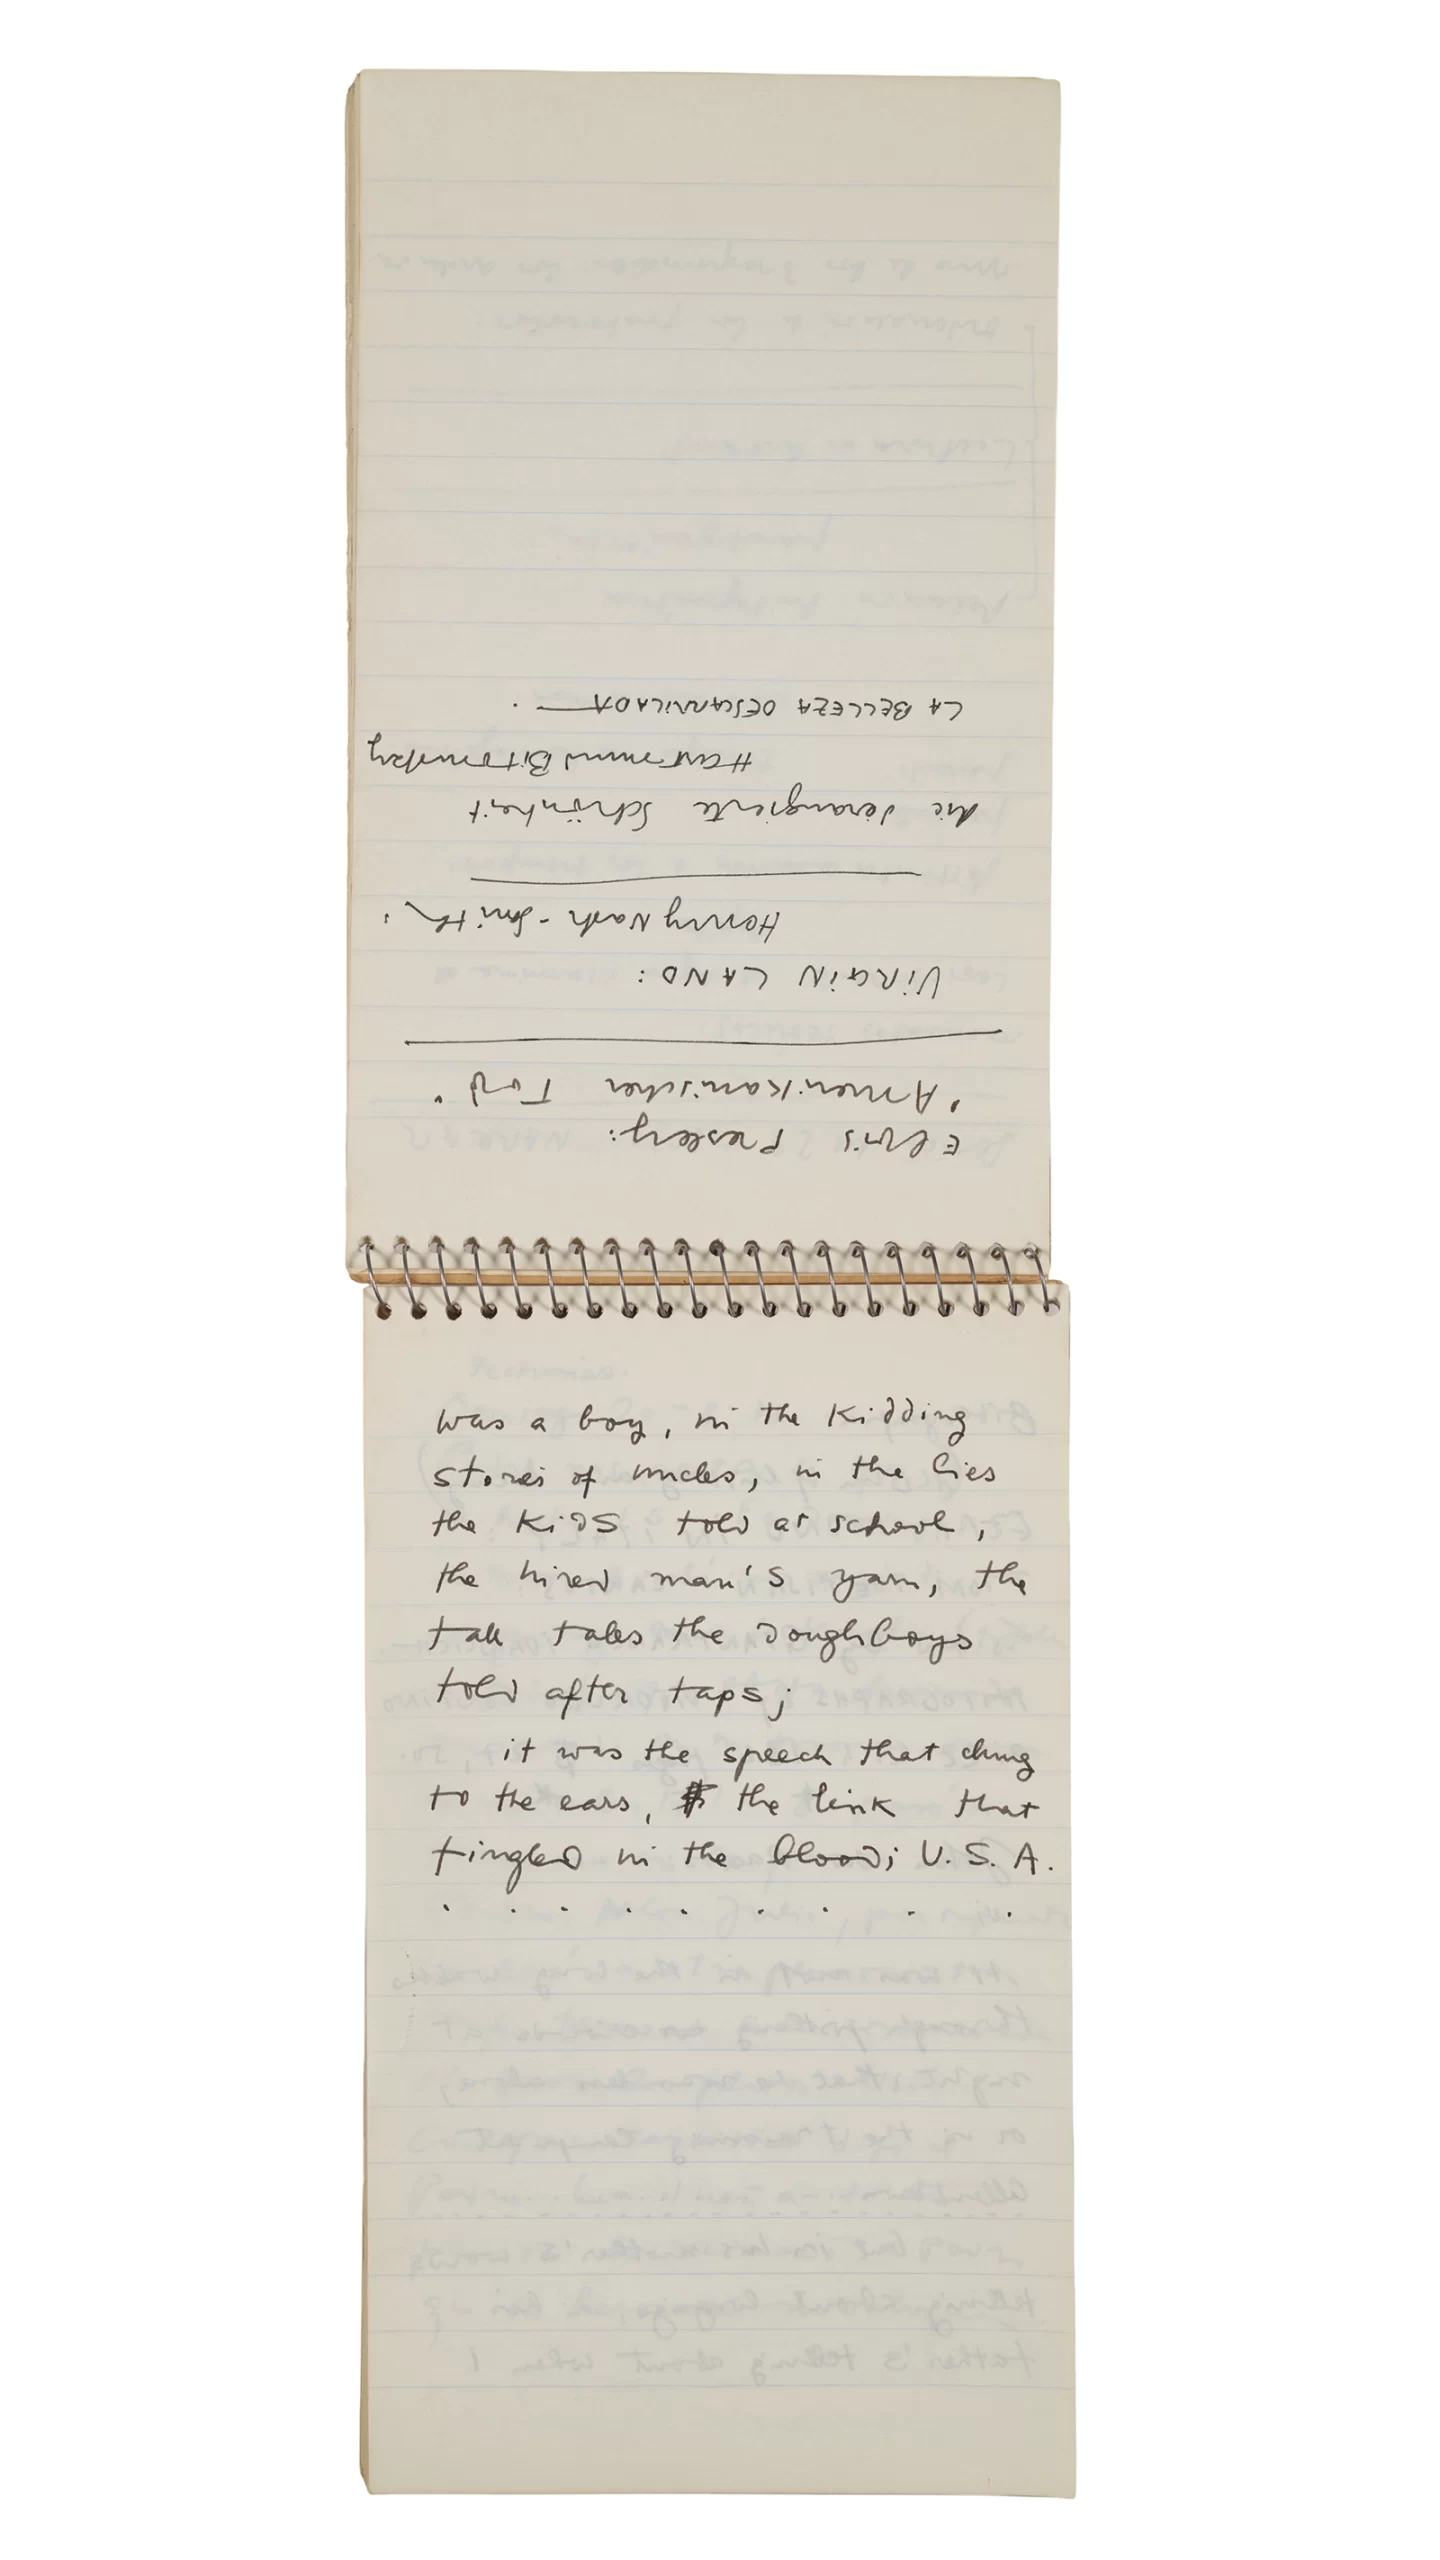 Elvis Presley:
"Amerikanischer Tod".
VIRGIN LAND:
Henry Nash-Smith.
die derangierte Schönheit
Hartmut Bitomsky
LA BELLEZA DESCARRILADA.
was a boy, in the kidding
stories of uncles, in the lies
the kids told at school,
the hired man's yarn, the
tall tales the doughboys
told after taps;
it was the speech that clung
to the ears, the link that
tingled in the blood; U.S.A.
. . . . . . . . .